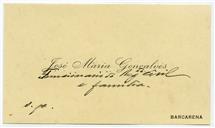 José Maria Gonçalves
Funcionario do Reg. Civil
e familia.
s. p.
BARCARENA